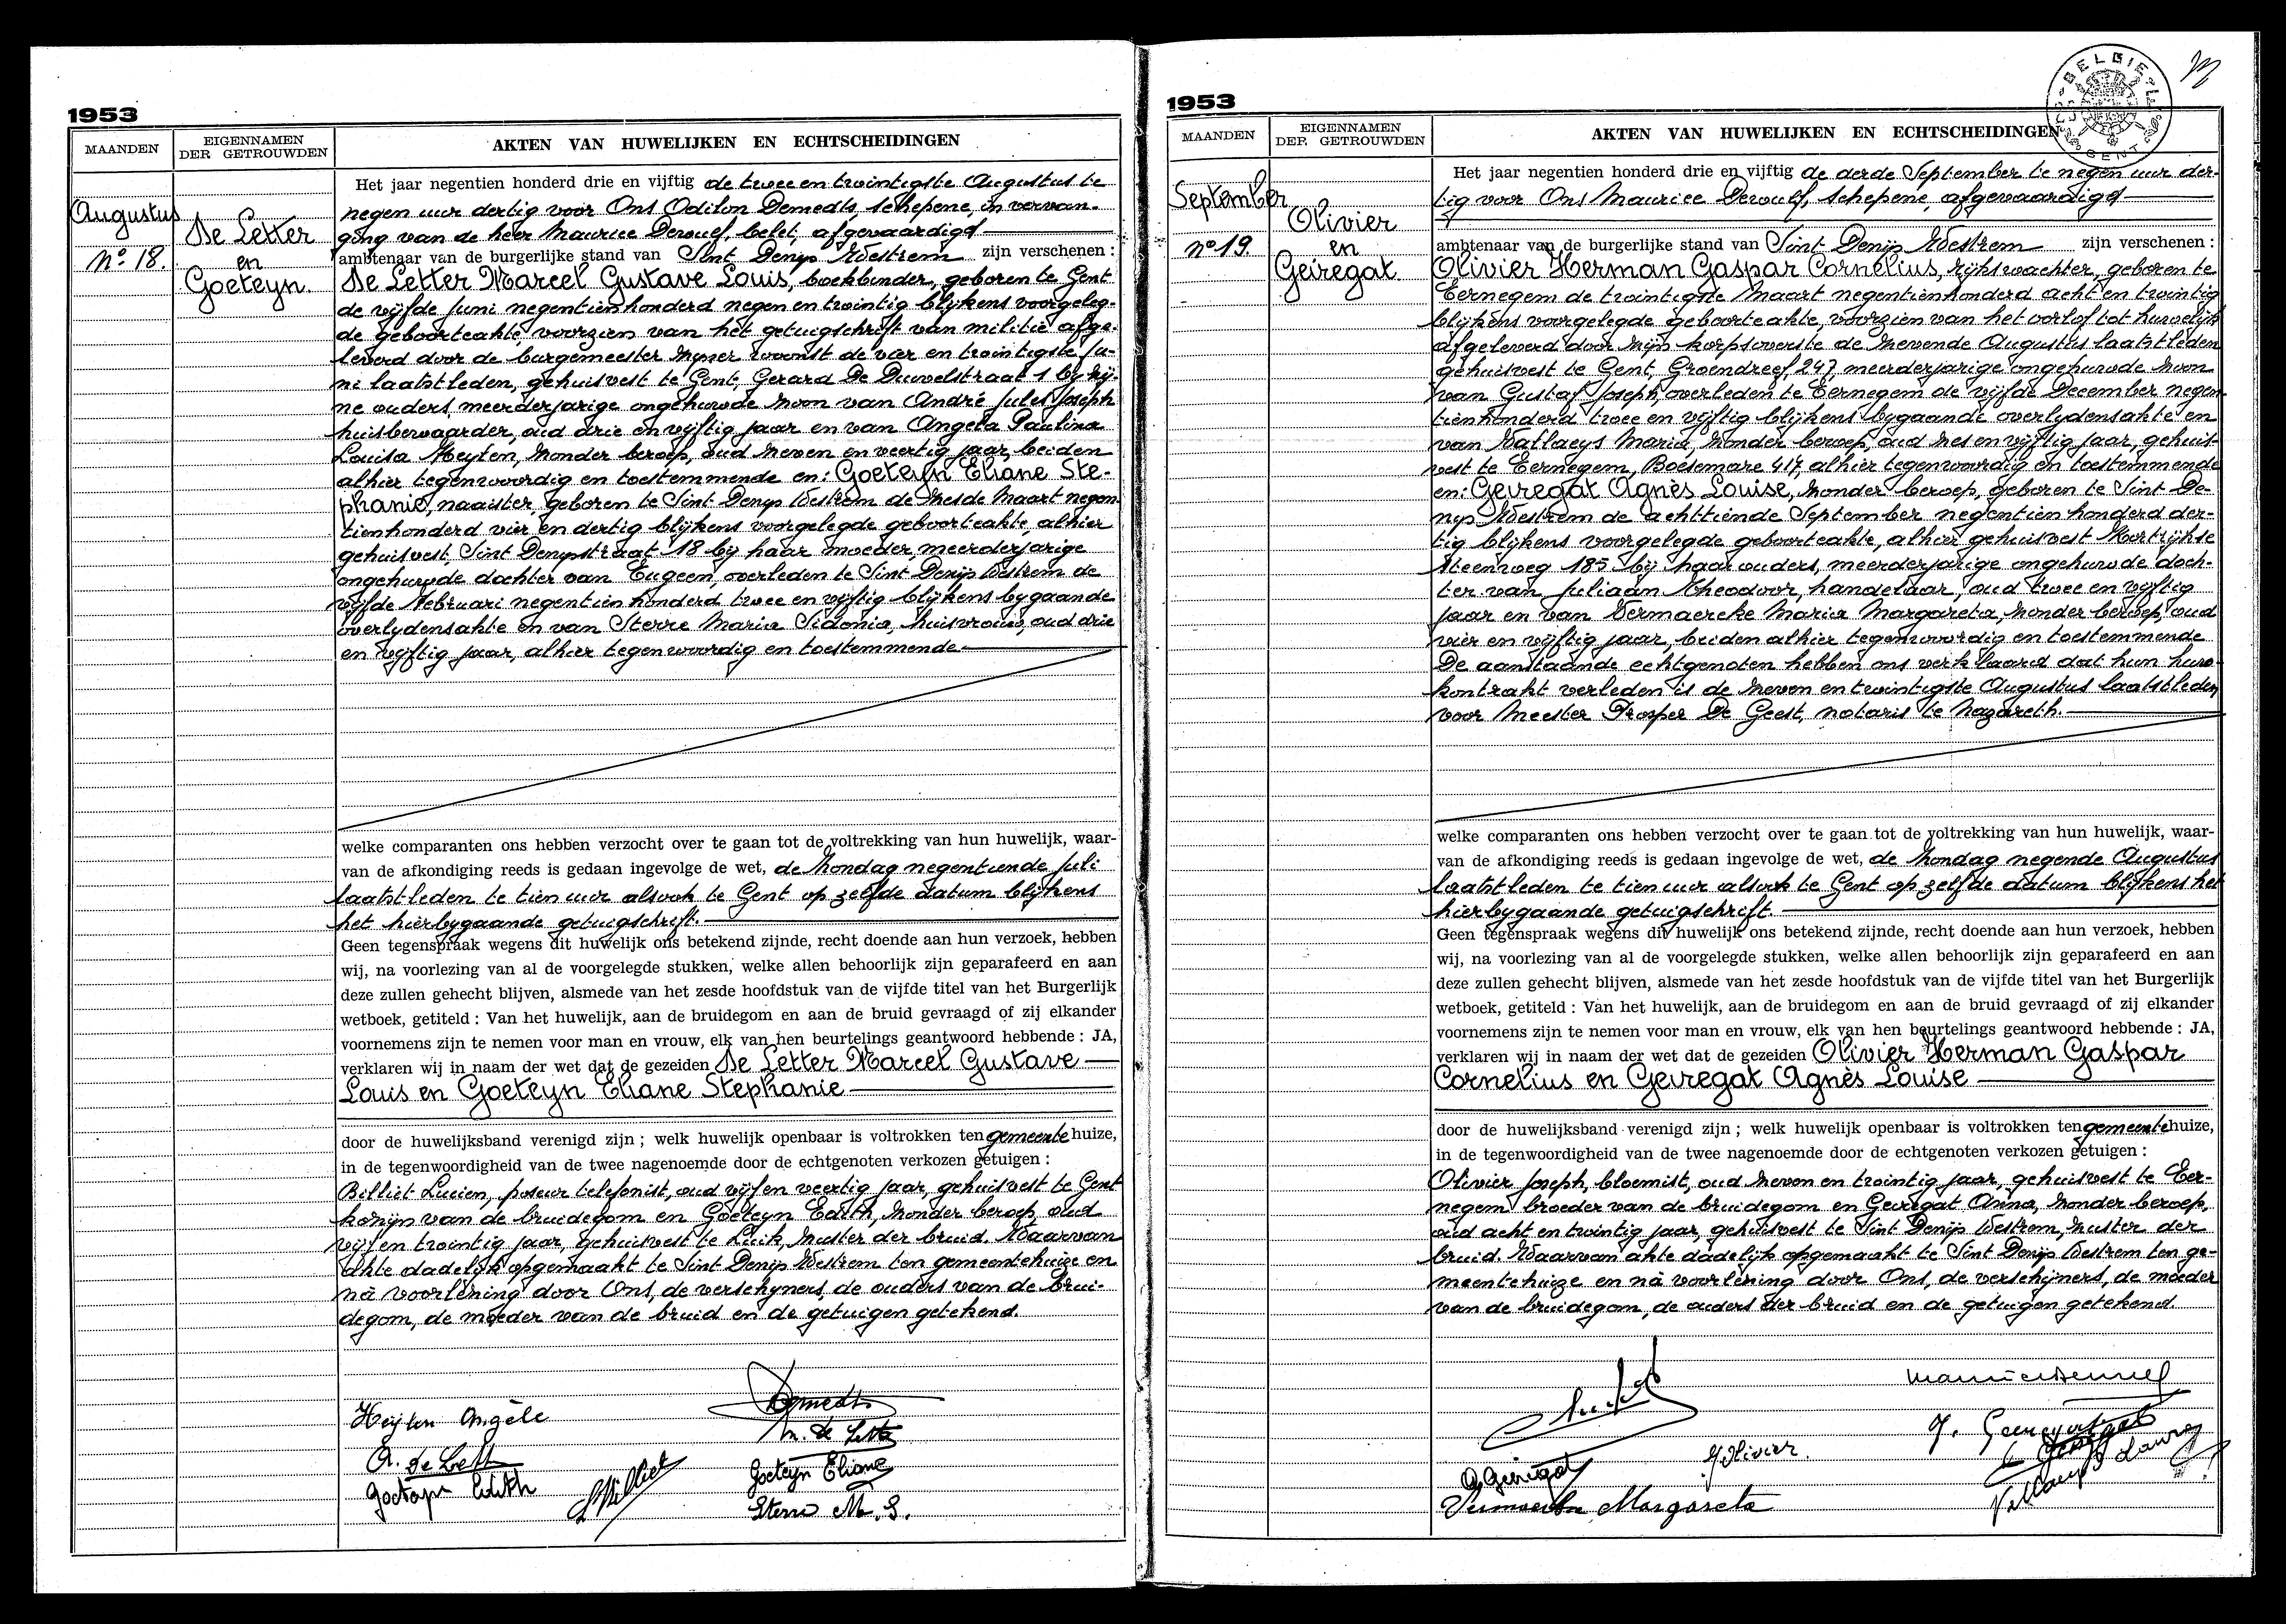 1953
MAANDEN
EIGENNAMEN
DER GETROUWDEN
AKTEN VAN HUWELIJKEN EN ECHTSCHEIDINGEN
Augustus
No 18.
De Letter
en
Goeteyn.
Het jaar negentien honderd drie en vijftig de twee en twintigste Augustus te
negen uur dertig voor Ons Odilon Demedts, schepene, in vervan-
ging van de heer Maurice Derouf, belet, afgevaardigd
ambtenaar van de burgerlijke stand van Sint Denijs Westrem zijn verschenen :
De Letter Marcel Gustave Louis, boekbinder, geboren te Gent
de vijfde Juni negentienhonderd negen en twintig blijkens voorgeleg-
de geboorteakte, voorzien van het getuigschrift van militie afge-
leverd door de burgemeester zijner woonst de vier en twintigste Ju-
ni laatstleden, gehuisvest te Gent, Gerard De Duvelstraat 1 bij zij-
ne ouders meerderjarige ongehuwde zoon van André Jules Joseph
huisbewaarder, oud drie en vijftig jaar en van Angela Paulina
Louisa Heyten, zonder beroep, oud zeven en veertig jaar, beiden
alhier tegenwoordig en toestemmende en: Goeteyn Eliane Ste-
phanie, naaister, geboren te Sint Denys Westrem de zesde Maart negen-
tienhonderd vier en dertig blijkens voorgelegde geboorteakte alhier
gehuisvest, Sint Denysstraat 18 by haar moeder meerderjarige
ongehuwde dochter van Eugeen, overleden te Sint Denijs Westrem de
vijfde Februari negentienhonderd twee en vijftig blijkens bygaande
overlydensakte en van Sterre Maria Sidonia, huisvrouw, oud drie
en vijftig jaar, alhier tegenwoordig en toestemmende
welke comparanten ons hebben verzocht over te gaan tot de voltrekking van hun huwelijk, waar-
van de afkondiging reeds is gedaan ingevolge de wet, de Zondag negentiende Juli
laatstleden te tien uur alsook te Gent op zelfde datum blijkens
het hierbygaande getuigschrift.
Geen tegenspraak wegens dit huwelijk ons betekend zijnde, recht doende aan hun verzoek, hebben
wij, na voorlezing van al de voorgelegde stukken, welke allen behoorlijk zijn geparafeerd en aan
deze zullen gehecht blijven, alsmede van het zesde hoofdstuk van de vijfde titel van het Burgerlijk
wetboek, getiteld : Van het huwelijk, aan de bruidegom en aan de bruid gevraagd of zij elkander
voornemens zijn te nemen voor man en vrouw, elk van hen beurtelings geantwoord hebbende : JA,
verklaren wij in naam der wet dat de gezeiden De Letter Marcel Gustave
Louis en Goeteyn Eliane Stephanie
door de huwelijksband verenigd zijn ; welk huwelijk openbaar is voltrokken ten gemeentehuize,
in de tegenwoordigheid van de twee nagenoemde door de echtgenoten verkozen getuigen :
Billiet Lucien, poseur telefonist, oud vijf en veertig jaar, gehuisvest te Gent
kozijn van de bruidegom en Goeteyn Edith, zonder beroep, oud
vijf en twintig jaar, gehuisvest te Luik, zuster der bruid. Waarvan
akte dadelijk opgemaakt te Sint Denijs Westrem ten gemeentehuize en
nà voorlezing door Ons, de verschyners, de ouders van de brui-
degom, de moeder van de bruid en de getuigen getekend.
Heyten Angèle
Demedts
M. de Letter
A. de Lett
Goeteyn Eliane
Goeteyn Edith
Billiet
Sterre M. S.
1953
BELGIE
GENT
MAANDEN
EIGENNAMEN
DER GETROUWDEN
AKTEN VAN HUWELIJKEN EN ECHTSCHEIDINGEN
September
no 19
Olivier
en
Geiregat
Het jaar negentien honderd drie en vijftig de derde September te negen uur der-
tig voor Ons Maurice Derouf, schepene, afgevaardigd
ambtenaar van de burgerlijke stand van Sint Denijs Westrem zijn verschenen :
Olivier Herman Gaspar Cornelius, rijkswachter, geboren te
Eernegem de twintigste Maart negentienhonderd acht en twintig
blijkens voorgelegde geboorteakte, voorzien van het oorlof tot huwelijk
afgeleverd door zijn korpsoverste de zevende Augustus laatstleden
gehuisvest te Gent, Groendreef 247, meerderjarige ongehuwde zoon
van Gustaf Joseph, overleden te Eernegem de vijfde December negen-
tienhonderd twee en vijftig blijkens bygaande overlydensakte en
van Vallaeys Maria, zonder beroep, oud zes en vijftig jaar, gehuis-
vest te Eernegem, Boesemare 417, alhier tegenwoordig en toestemmende
en: Geiregat Agnès Louise, zonder beroep, geboren te Sint De-
nijs Westrem de achttiende September negentienhonderd der-
tig blijkens voorgelegde geboorteakte, alhier gehuisvest Kortrijkse
steenweg 185 bij haar ouders, meerderjarige ongehuwde doch-
ter van Juliaan Theodoor, handelaar, oud twee en vijftig
jaar en van Vermaercke Maria Margareta, zonder beroep, oud
vier en vijftig jaar, beiden alhier tegenwoordig en toestemmende
De aanstaande echtgenoten hebben ons verklaard dat hun huw.
kontrakt verleden is de zeven en twintigste Augustus laatstleden
voor Meester Prosper De Geest, notaris te Nazareth.
welke comparanten ons hebben verzocht over te gaan tot de voltrekking van hun huwelijk, waar-
van de afkondiging reeds is gedaan ingevolge de wet, de Zondag negende Augustus
laatstleden te tien uur alsook te Gent op zelfde datum blijkens het
hierbygaande getuigschrift.
Geen tegenspraak wegens dit huwelijk ons betekend zijnde, recht doende aan hun verzoek, hebben
wij, na voorlezing van al de voorgelegde stukken, welke allen behoorlijk zijn geparafeerd en aan
deze zullen gehecht blijven, alsmede van het zesde hoofdstuk van de vijfde titel van het Burgerlijk
wetboek, getiteld : Van het huwelijk, aan de bruidegom en aan de bruid gevraagd of zij elkander
voornemens zijn te nemen voor man en vrouw, elk van hen beurtelings geantwoord hebbende : JA,
verklaren wij in naam der wet dat de gezeiden Olivier Herman Gaspar
Cornelius en Geiregat Agnès Louise
door de huwelijksband verenigd zijn ; welk huwelijk openbaar is voltrokken ten gemeentehuize,
in de tegenwoordigheid van de twee nagenoemde door de echtgenoten verkozen getuigen :
Olivier Joseph, bloemist, oud zeven en twintig jaar, gehuisvest te Eer-
negem broeder van de bruidegom en Geiregat Anna, zonder beroep,
oud acht en twintig jaar, gehuisvest te Sint Denijs Westrem, zuster der
bruid. Waarvan akte dadelijk opgemaakt te Sint Denijs Westrem ten ge-
meentehuize en nà voorlezing door Ons, de verschijners, de moeder
van de bruidegom, de ouders der bruid en de getuigen getekend
J. Olivier.
A Geiregat
Margareta